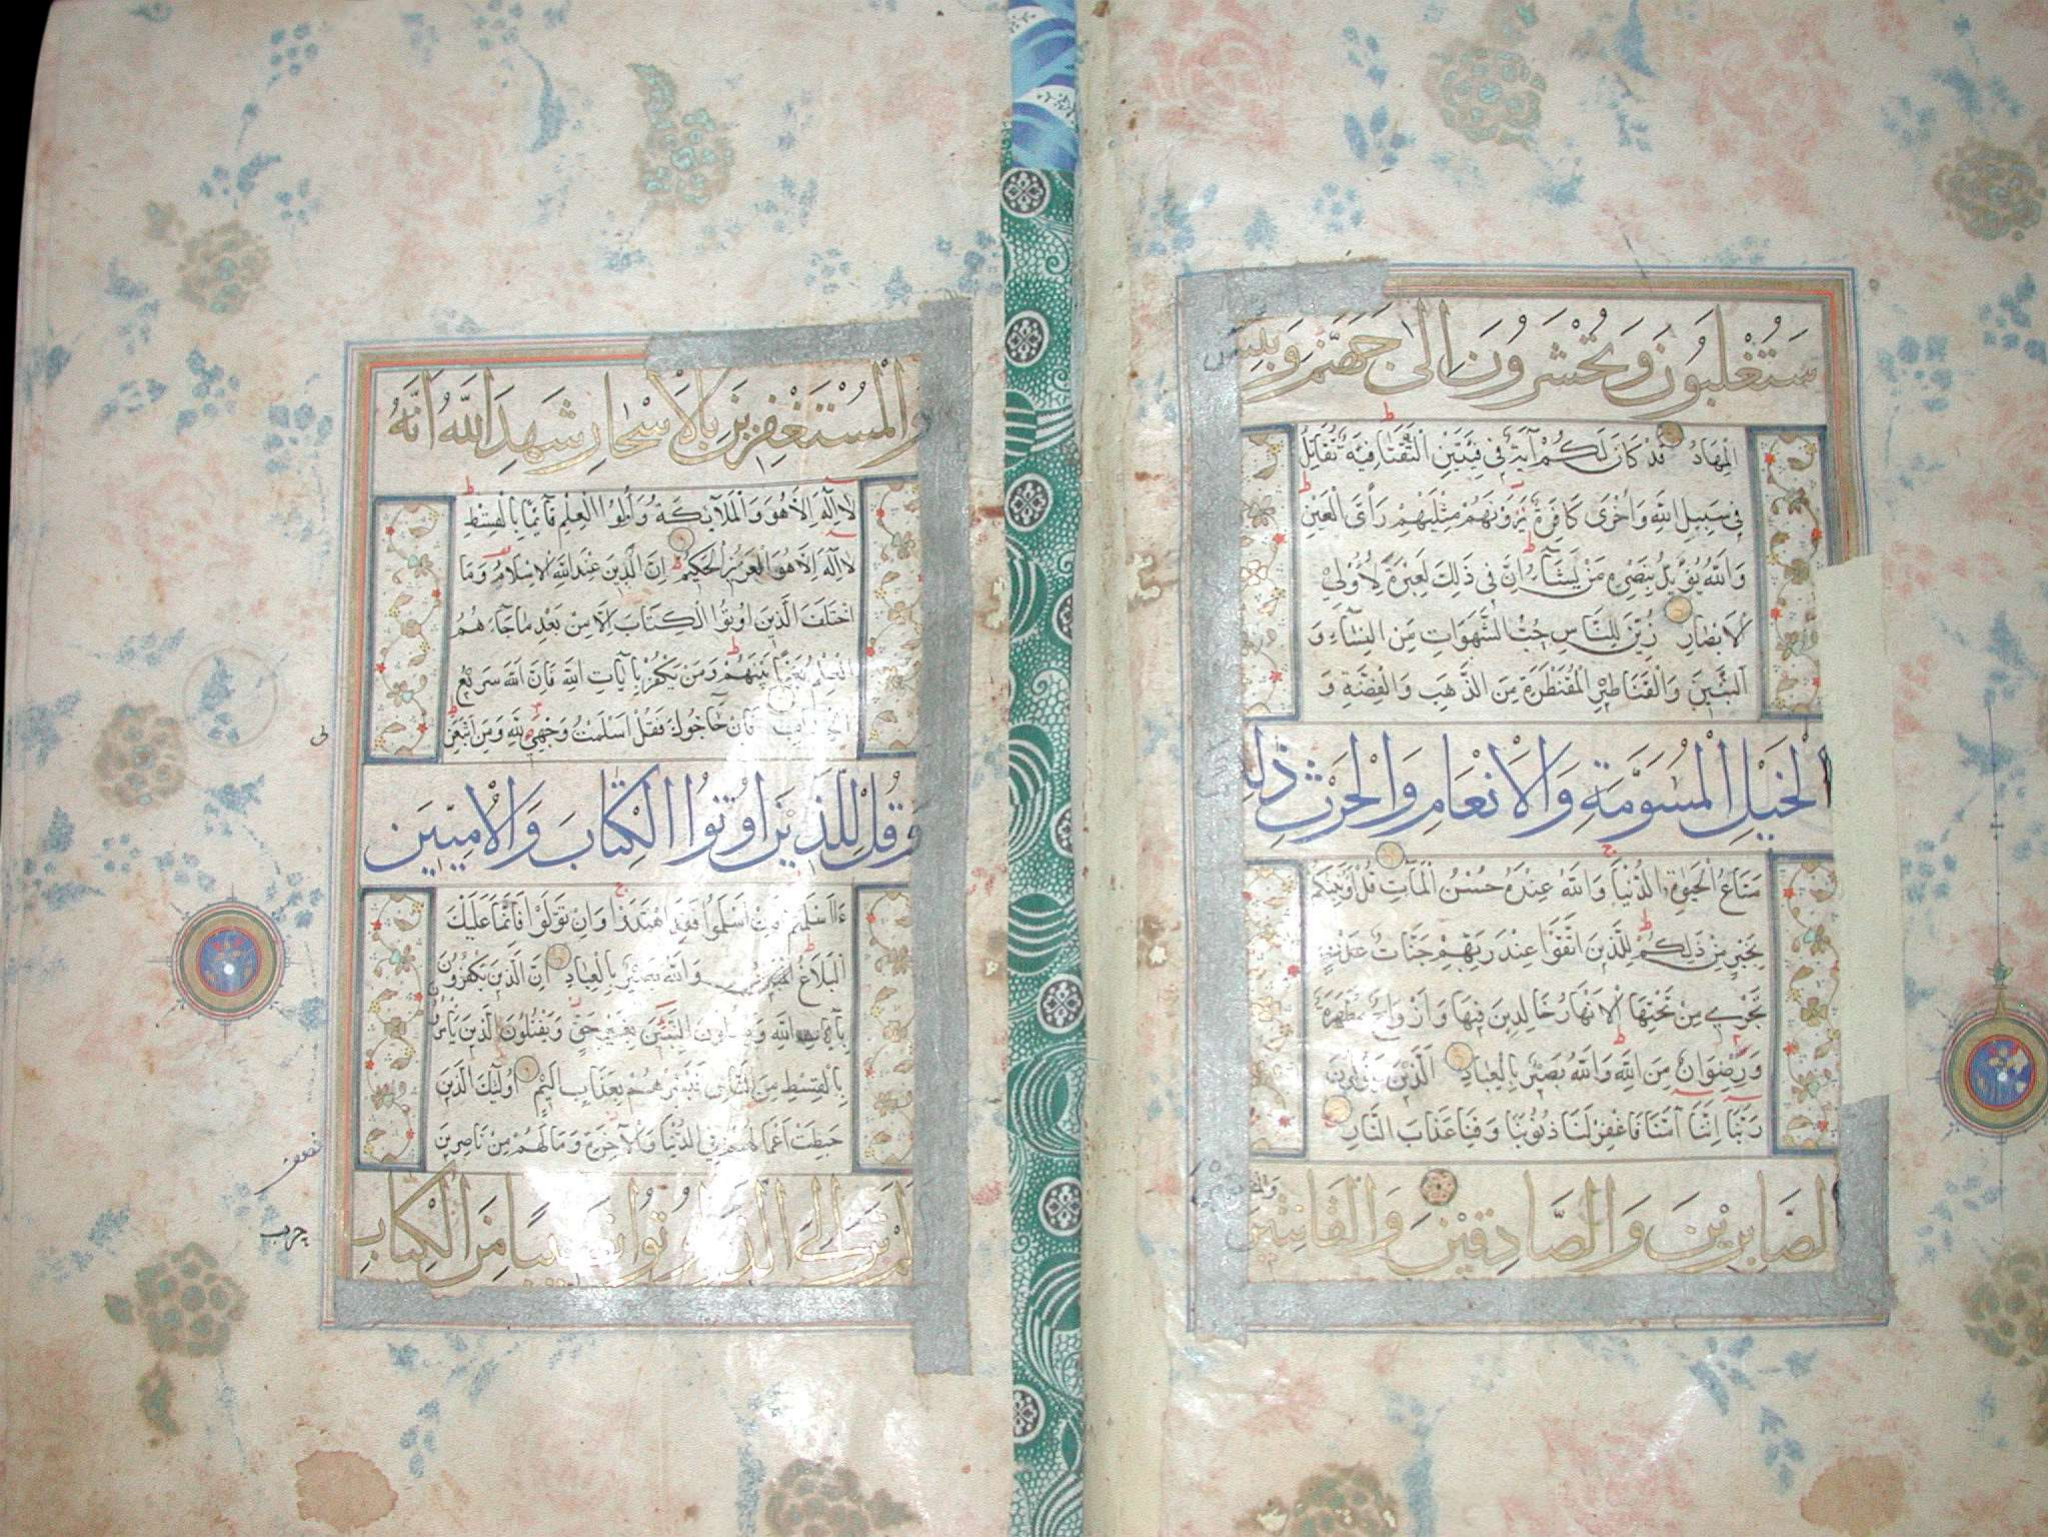 سَتُغْلَبُونَ وَتُحْشَرُونَ اِلٰى جَهَنَّمَ وَبِئْسَ
الْمِهَادُ قَدْ كَانَ لَكُمْ آيَةٌ فِي فِئَتَيْنِ الْتَقَتَا فِئَةٌ تُقَاتِلُ
فِي سَبِيلِ اللّٰهِ وَاُخْرَى كَافِرَةٌ يَرَوْنَهُمْ مِثْلَيْهِمْ رَأْىَ الْعَيْنِ
وَاللّٰهُ يُؤَيِّدُ بِنَصْرِهِ مَنْ يَشَآءُ اِنَّ فِي ذَلِكَ لَعِبْرَةً لِاُولِي
الْاَبْصَارِ زُيِّنَ لِلنَّاسِ حُبُّ الشَّهَوَاتِ مِنَ النِّسَآءِ وَ
الْبَنِينَ وَالْقَنَاطِيرِ الْمُقَنْطَرَةِ مِنَ الذَّهَبِ وَالْفِضَّةِ وَ
الْخَيْلِ الْمُسَوَّمَةِ وَالْاَنْعَامِ وَالْحَرْثِ ذٰلِكَ
مَتَاعُ الْحَيٰوةِ الدُّنْيَا وَاللّٰهُ عِنْدَهُ حُسْنُ الْمَآبِ قُلْ اَؤُنَبِّئُكُمْ
بِخَيْرٍ مِنْ ذَلِكُمْ لِلَّذِينَ اتَّقَوْا عِنْدَ رَبِّهِمْ جَنَّاتُ
تَجْرِي مِنْ تَحْتِهَا الْاَنْهَارُ خَالِدِينَ فِيهَا وَاَزْوَاجٌ مُطَهَّرَةٌ
وَرِضْوَانٌ مِنَ اللّٰهِ وَاللّٰهُ بَصِيرٌ بِالْعِبَادِ اَلَّذِينَ يَقُولُونَ
رَبَّنَا اِنَّنَا آمَنَّا فَاغْفِرْ لَنَا ذُنُوبَنَا وَقِنَا عَذَابَ النَّارِ
الصَّابِرِينَ وَالصَّادِقِينَ وَالْقَانِتِينَ
وَالْمُسْتَغْفِرِينَ بِالْاَسْحَارِ شَهِدَ اللّٰهُ اَنَّهُ
لَا اِلٰهَ اِلَّا هُوَ وَالْمَلَآئِكَةُ وَاُولُوا الْعِلْمِ قَآئِمًا بِالْقِسْطِ
لَا اِلٰهَ اِلَّا هُوَ الْعَزِيزُ الْحَكِيمُ اِنَّ الدِّينَ عِنْدَ اللّٰهِ الْاِسْلَامُ وَمَا
اخْتَلَفَ الَّذِينَ اُوتُوا الْكِتَابَ اِلَّا مِنْ بَعْدِ مَا جَآءَهُمُ
الْعِلْمُ بَغْيًا بَيْنَهُمْ وَمَنْ يَكْفُرْ بِآيَاتِ اللّٰهِ فَاِنَّ اللّٰهَ سَرِيعُ
الْحِسَابِ فَاِنْ حَآجُّوكَ فَقُلْ اَسْلَمْتُ وَجْهِيَ لِلّٰهِ وَمَنِ اتَّبَعَنِ
وَقُلْ لِلَّذِينَ اُوتُوا الْكِتَابَ وَالْاُمِّيِّينَ
ءَاَسْلَمْتُمْ فَاِنْ اَسْلَمُوا فَقَدِ اهْتَدَوْا وَاِنْ تَوَلَّوْا فَاِنَّمَا عَلَيْكَ
الْبَلَاغُ وَاللّٰهُ بَصِيرٌ بِالْعِبَادِ اِنَّ الَّذِينَ يَكْفُرُونَ
بِآيَاتِ اللّٰهِ وَيَقْتُلُونَ النَّبِيِّينَ بِغَيْرِ حَقٍّ وَيَقْتُلُونَ الَّذِينَ يَأْمُرُونَ
بِالْقِسْطِ مِنَ النَّاسِ فَبَشِّرْهُمْ بِعَذَابٍ اَلِيمٍ اُولٰٓئِكَ الَّذِينَ
حَبِطَتْ اَعْمَالُهُمْ فِي الدُّنْيَا وَالْآخِرَةِ وَمَا لَهُمْ مِنْ نَاصِرِينَ
اَلَمْ تَرَ اِلَى الَّذِينَ اُوتُوا نَصِيبًا مِنَ الْكِتَابِ
حزب